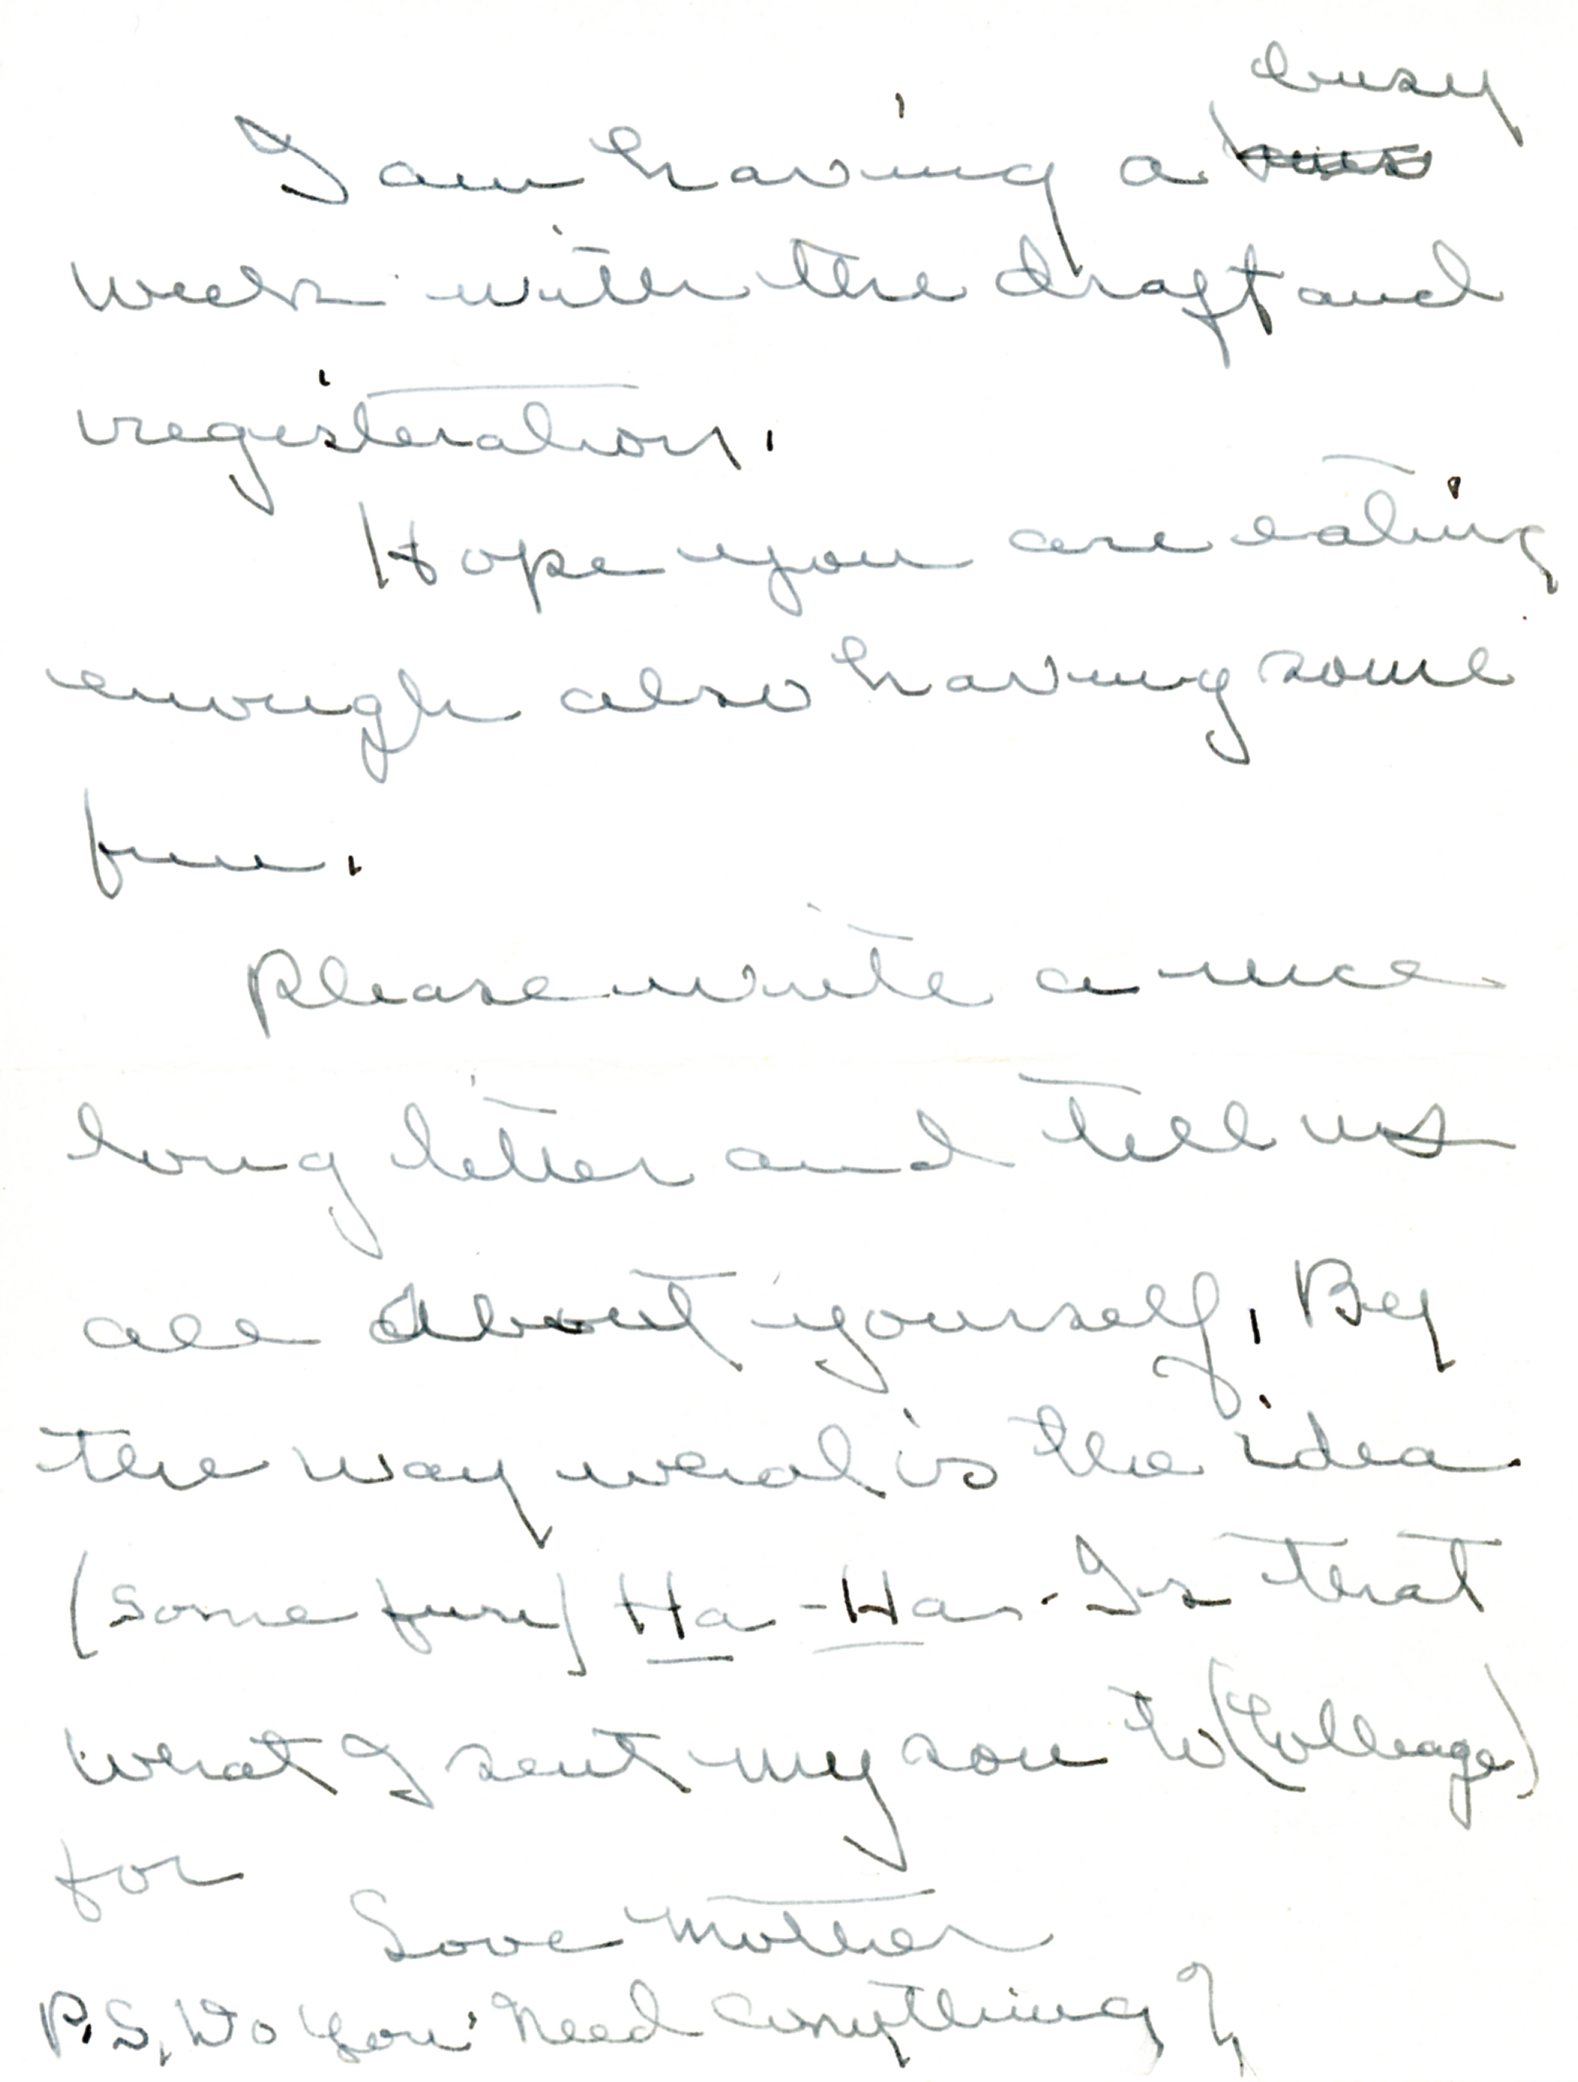 I am having a busy
week with the draft and
registeration.
Hope you are eating
enough also having some
fun.
Please write a nice
long letter and tell us
all about yourself. By
the way what is the idea
(some fun) Ha-Ha-Is that
what I sent my son to (Colleage)
for
Love Mother
P.S. Do You Need Anything?